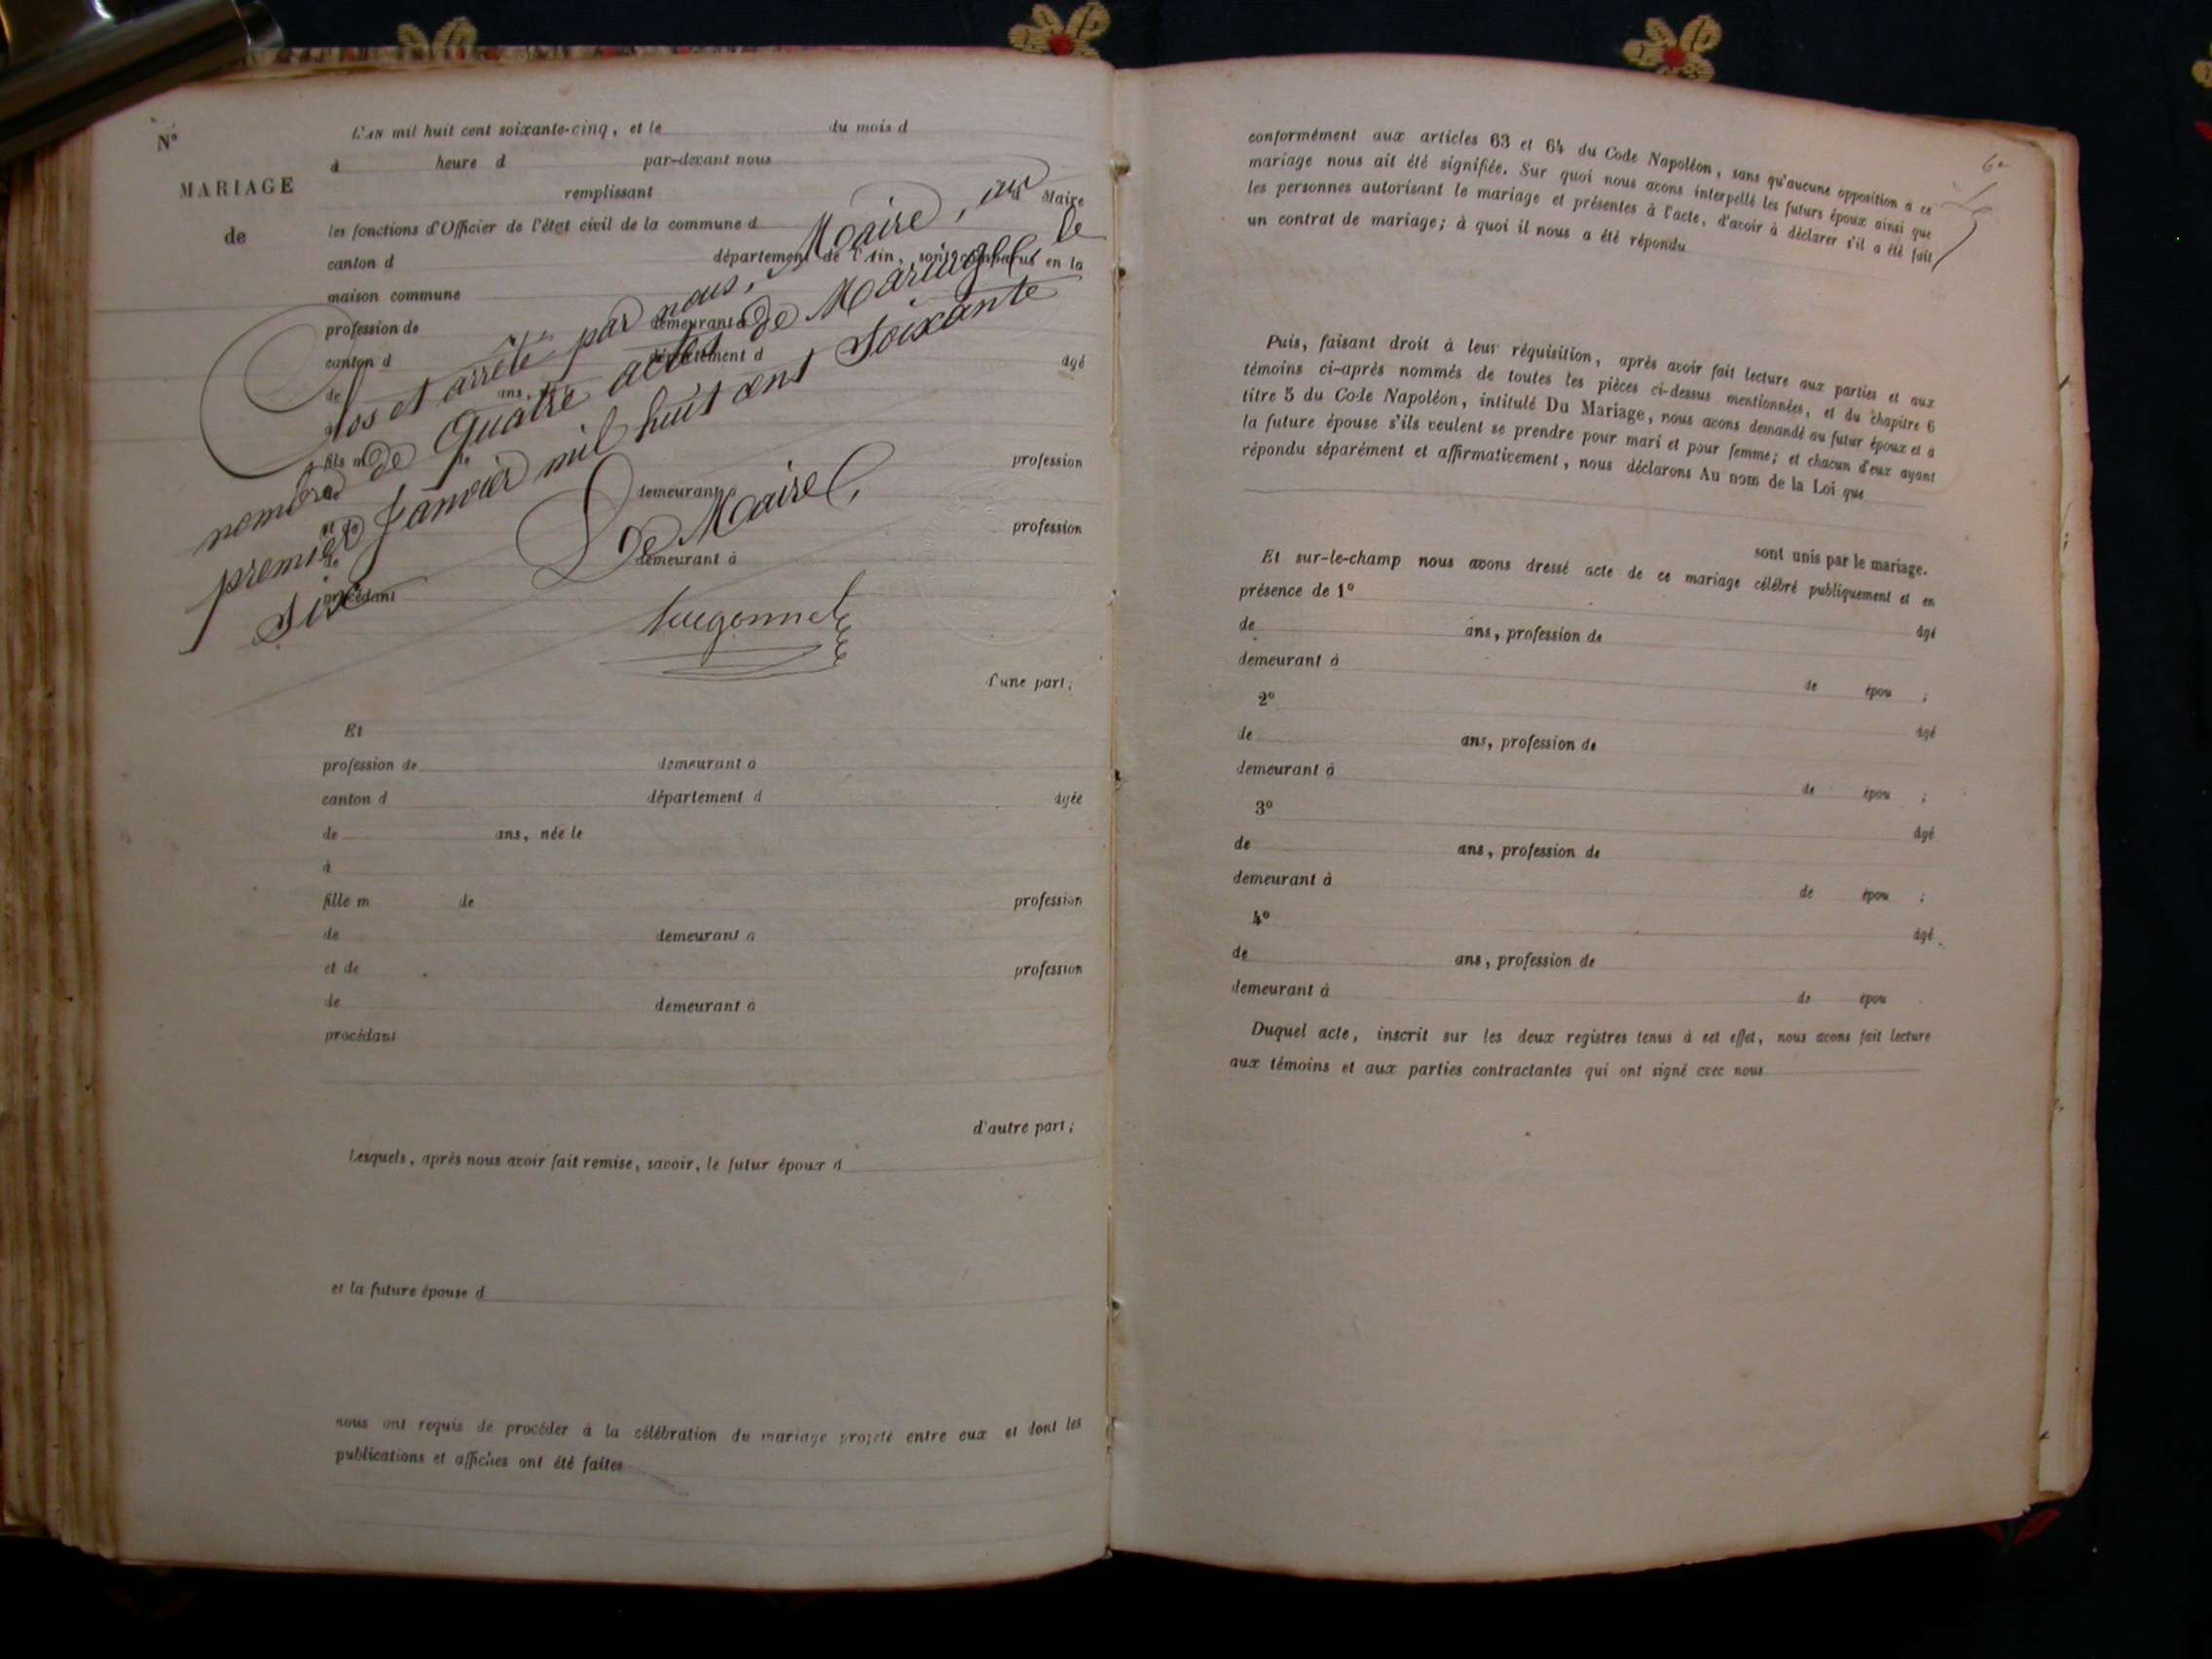 N°
MARIAGE
de
L'AN mil huit cent soixante-cinq, et le du mois d
à heure d par-devant nous
remplissant
Maire
les fonctions d'Officier de l'état civil de la commune d
canton d département de l'Ain, sont comparus en la
maison commune
profession de demeurant à
canton d département d âgé
de ans,
fils m de profession
demeurant
et de profession
de demeurant à
procédant
d'une part;
Clos et arrêté par nous, Maire, au
nombre de quatre actes de Mariage, le
premier Janvier mil huit cent soixante
six
Le Maire,
Et
profession de demeurant à
canton d département d âgée
de ans, née le
à
fille m de profession
de demeurant à
et de profession
de demeurant à
procédant
d'autre part;
Lesquels, après nous avoir fait remise, savoir, le futur époux d
et la future épouse d
nous ont requis de procéder à la célébration du mariage projeté entre eux et dont les
publications et affiches ont été faites
conformément aux articles 63 et 64 du Code Napoléon, sans qu'aucune opposition à ce
mariage nous ait été signifiée. Sur quoi nous avons interpellé les futurs époux ainsi que
les personnes autorisant le mariage et présentes à l'acte, d'avoir à déclarer s'il a été fait
un contrat de mariage; à quoi il nous a été répondu
Puis, faisant droit à leur réquisition, après avoir fait lecture aux parties et aux
témoins ci-après nommés de toutes les pièces ci-dessus mentionnées, et du chapitre 6
titre 5 du Code Napoléon, intitulé Du Mariage, nous avons demandé au futur époux et à
la future épouse s'ils veulent se prendre pour mari et pour femme; et chacun d'eux ayant
répondu séparément et affirmativement, nous déclarons Au nom de la Loi que
sont unis par le mariage.
Et sur-le-champ nous avons dressé acte de ce mariage célébré publiquement et en
présence de 1°
âgé
de ans, profession de
demeurant à de épou ;
2°
âgé
de ans, profession de
demeurant à de épou ;
3°
âgé
de ans, profession de
demeurant à de épou ;
4°
âgé
de ans, profession de
demeurant à de épou
Duquel acte, inscrit sur les deux registres tenus à cet effet, nous avons fait lecture
aux témoins et aux parties contractantes qui ont signé avec nous